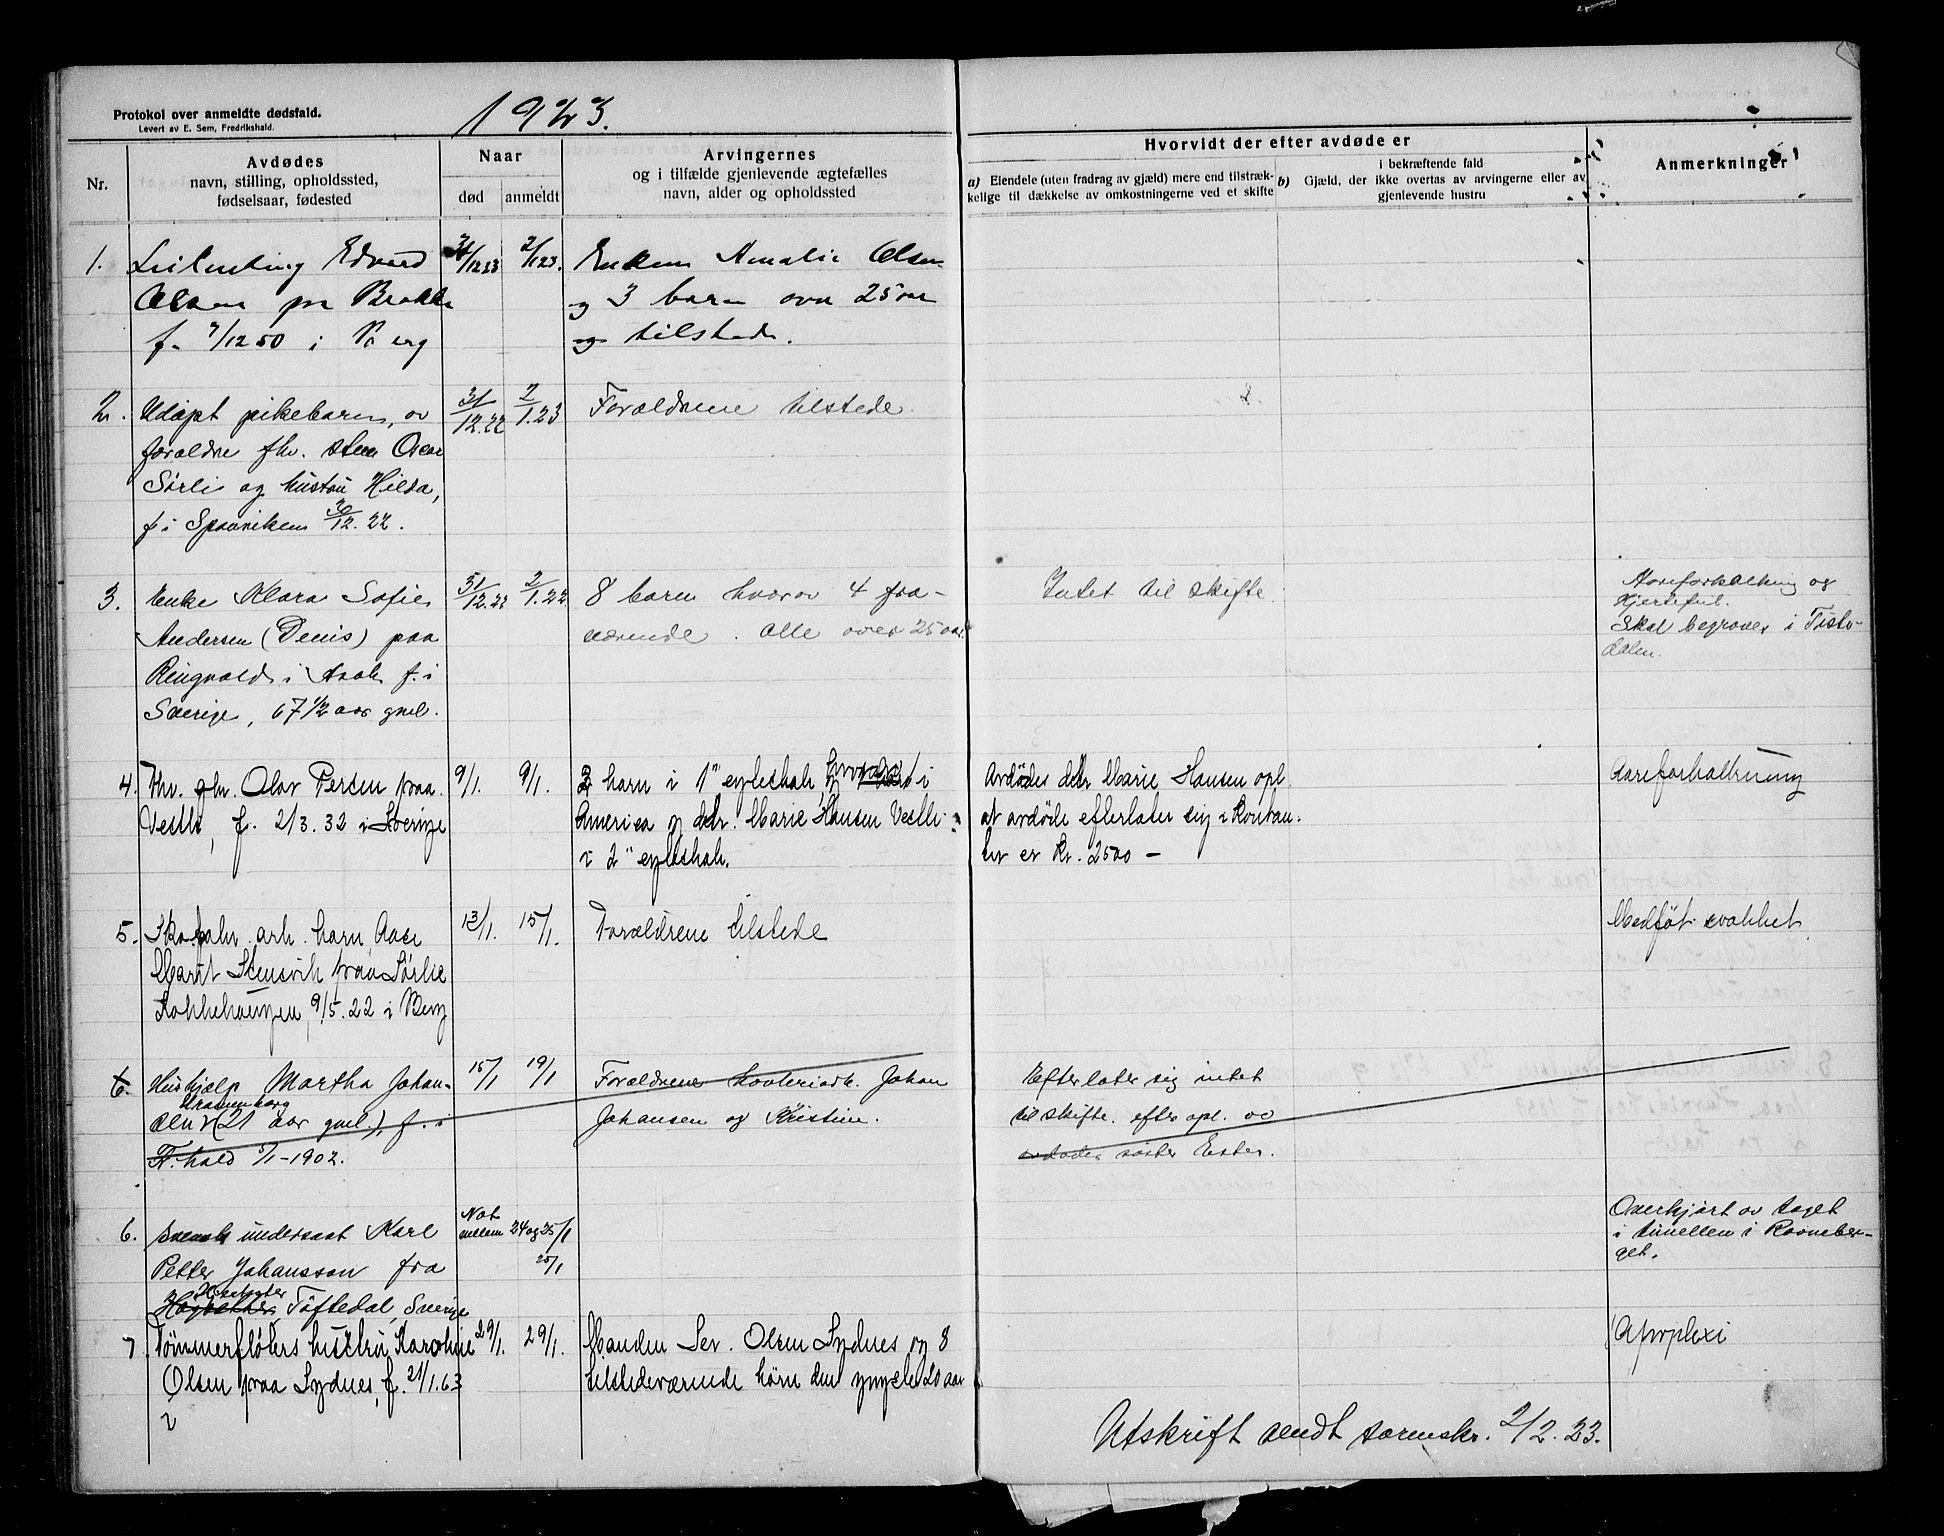 Protokol over anmeldte dødsfald.
Levert av E. Sem, Fredrikshald.
1923.
Nr.
Avdødes
navn, stilling, opholdssted,
fødselsaar, fødested
Naar
død
anmeldt
Arvingernes
og i tilfælde gjenlevende ægtefælles
navn, alder og opholdssted
Hvorvidt der efter avdøde er
a) Eiendele (uten fradrag av gjæld) mere end tilstræk-
kelige til dækkelse av omkostningerne ved et skifte
i bekræftende fald
b) Gjæld, der ikke overtas av arvingerne eller av
gjenlevende hustru
Anmerkninger
1. Edvard
Olsen pr Brække
f. 7/12 50 i Berg
2/1 23.
Enken Amalie Olsen
og 3 barn over 25 aar
og tilstede.
2. Udøpt pikebarn, av
forældre fhv. Oscar
Sørli og hustru Hilda,
f. i Sponviken 30/12. 22.
31/12. 22
2/1. 23
Forældrene tilstede.
3. Enke Klara Sofie
Andersen (Denis) paa
Ringvold i Asak f. i
Sverige, 67 1/2 aar gml.
31/12. 22
2/1. 22
8 barn hvorav 4 fra-
værende. Alle over 25 aar.
Intet til skifte.
Aareforkalkning og
Hjertefeil.
Skal begraves i Tiste-
dalen.
4. Fhv. gbr. Olav Persen paa
Vestli, f. 2/3. 32 i Sverige
9/1.
9/1.
2 barn i 1" egteskab i
America og dtr. Marie Hansen Vestli
i 2" egteskab.
Avdødes dtr Marie Hansen opl.
at avdøde efterlater sig i Kontan-
ter er Kr. 2500 -
Aareforkalkning
5. Skofabr. arb. barn Aase
Marit Stensvik paa Sørlie
Kokkehaugen, 9/5. 22 i Berg
13/1.
15/1.
Forældrene tilstede
Medføt svakhet.
6. Hushjælp Martha Johan-
Kranenborg
sen (21 aar gml.), f. i
Fr.hald 5/1-1902.
15/1
19/1
Forældrene Johan
Johansen og Kristine.
Efterlater sig intet
til skifte. efter opl. av
avdødes søster Ester.
6. Svensk undersaat Karl
Petter Johansson fra
Töftedal, Sverige
Nat
mellem 24 og 25/1
25/1
Overkjørt av toget
i tunellen i Ravneber-
get.
7. Tømmerfløters hustru Karoline
Olsen paa Sydnes, f. 21/1. 63
i
29/1.
29/1.
Manden Sev. Olsen Sydnes og 8
tilstedeværende børn den yngste 20 aar
Apoplexi
Utskrift sendt sorenskr. 2/2. 23.